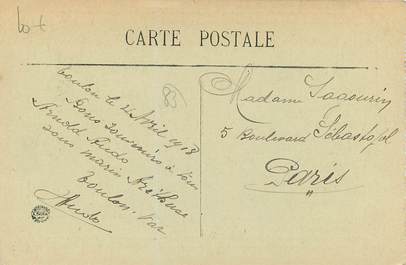 lot
CARTE POSTALE
Toulon le 2 Avril 1918
Bons souvenirs à tous
Arnold Audo
sous marin Aréthuse
Toulon. Var
Audo
Madame
5 Boulevard Sébastopol
Paris